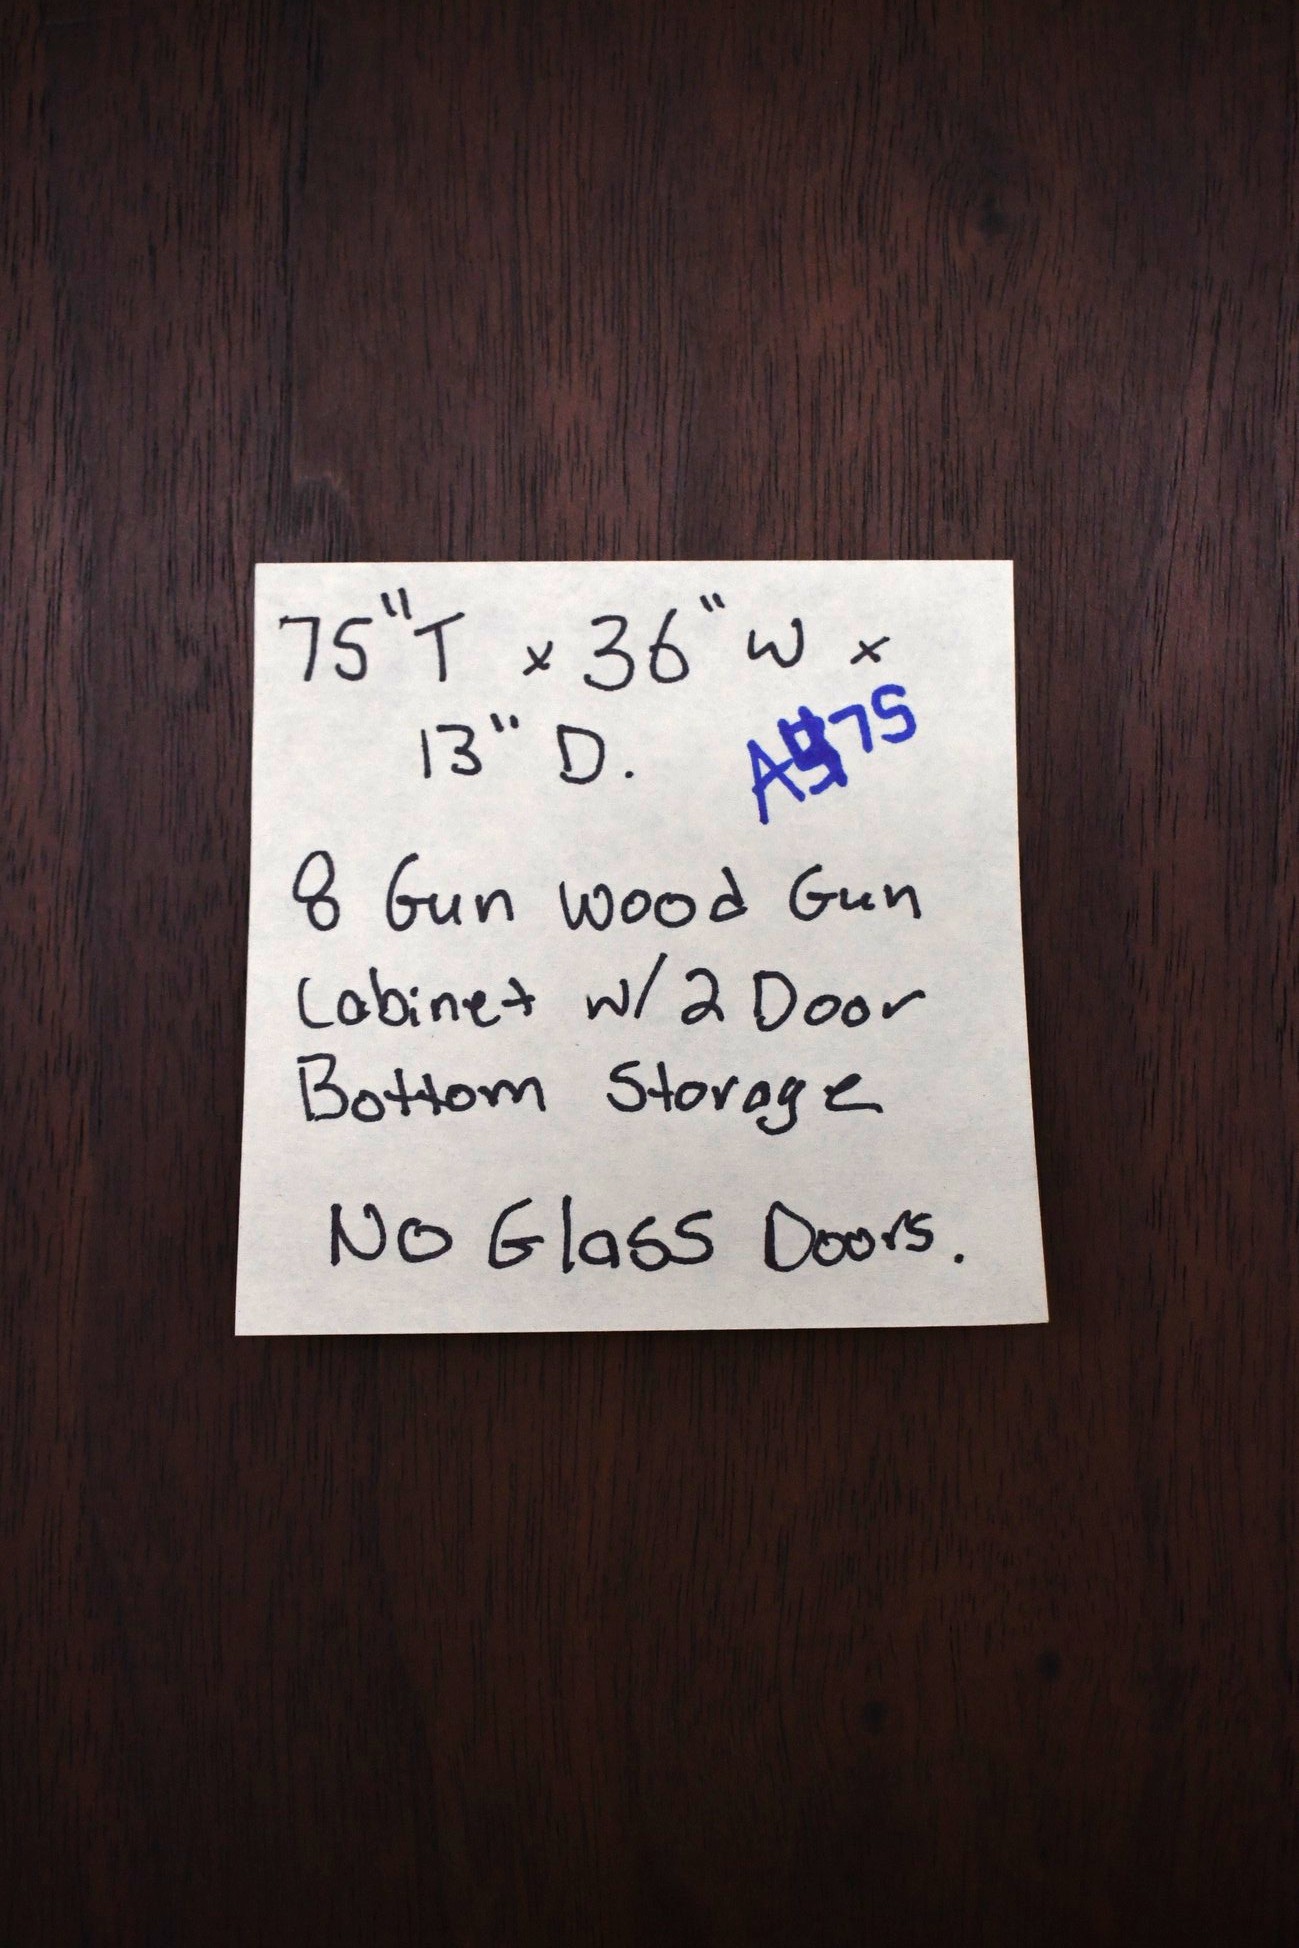 75"T x 36" W x
13" D.
8 Gun Wood Gun
Cabinet w/ 2 Door
Bottom Storage
No Glass Doors.